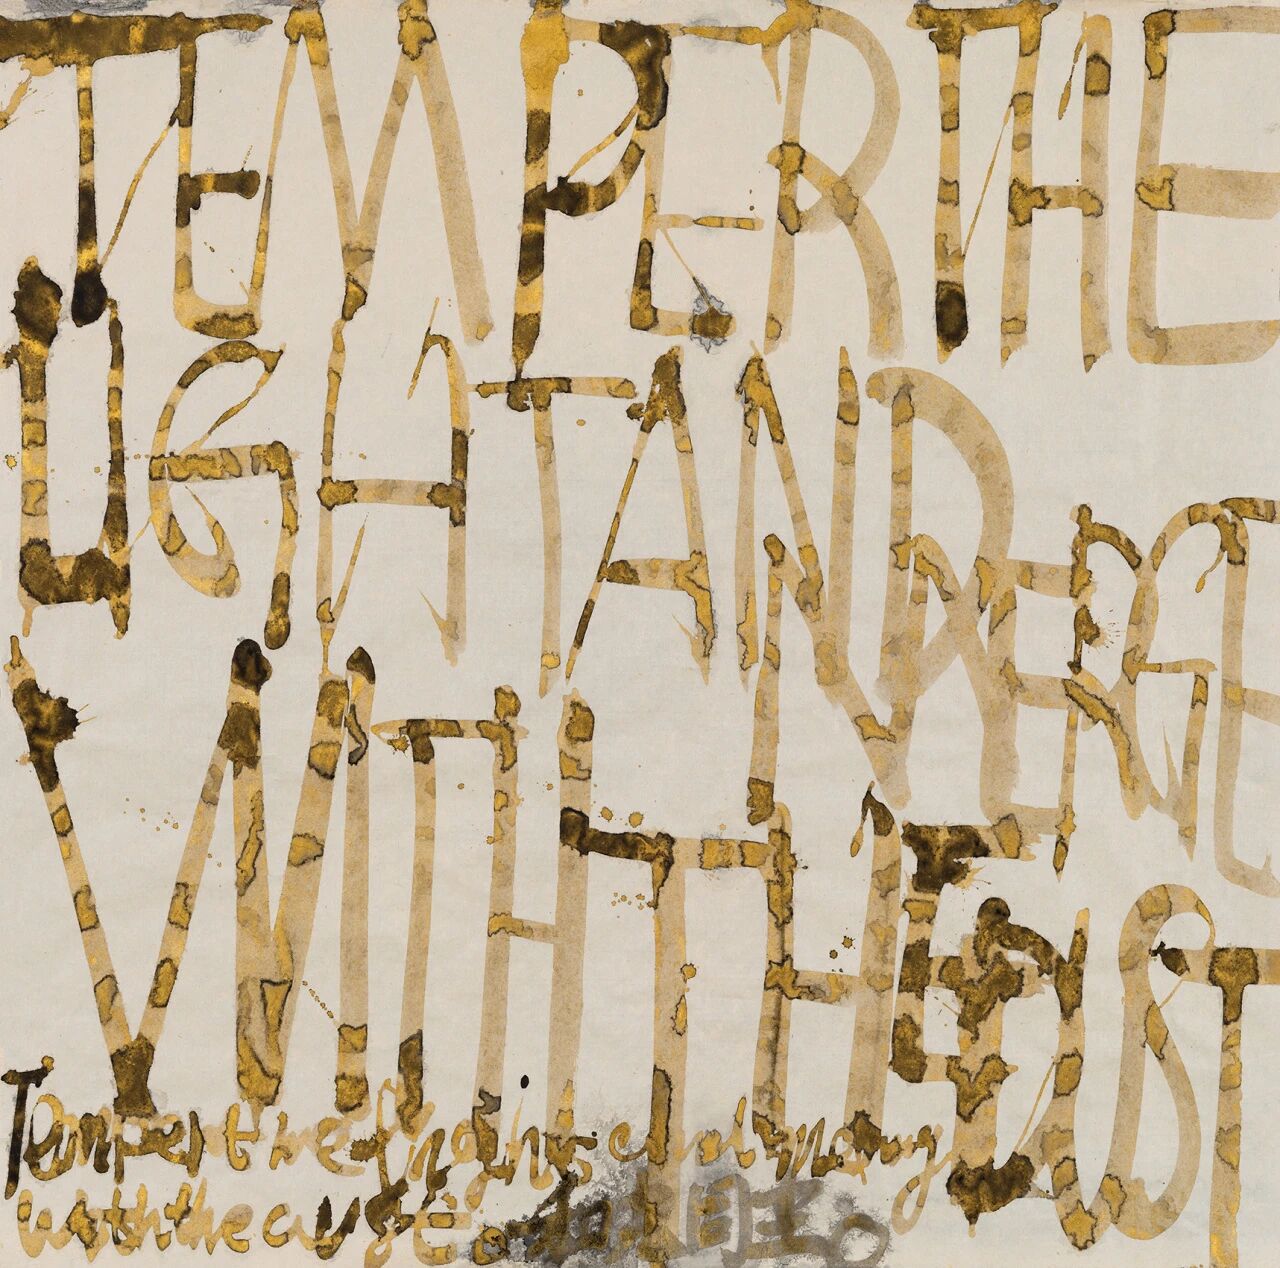 TEMPER THE
LIGHT AND MERGE
WITH THE DUST
Temper the light and merge
with the dust.